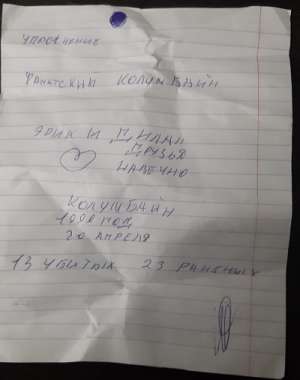 КОЛУМБАЙН
ЭРИК И ДИЛАН
ДРУЗЬЯ
НАВЕЧНО
КОЛУМБАЙН
ГОД
20 АПРЕЛЯ
13 УБИТЫХ 23 РАНЕНЫХ